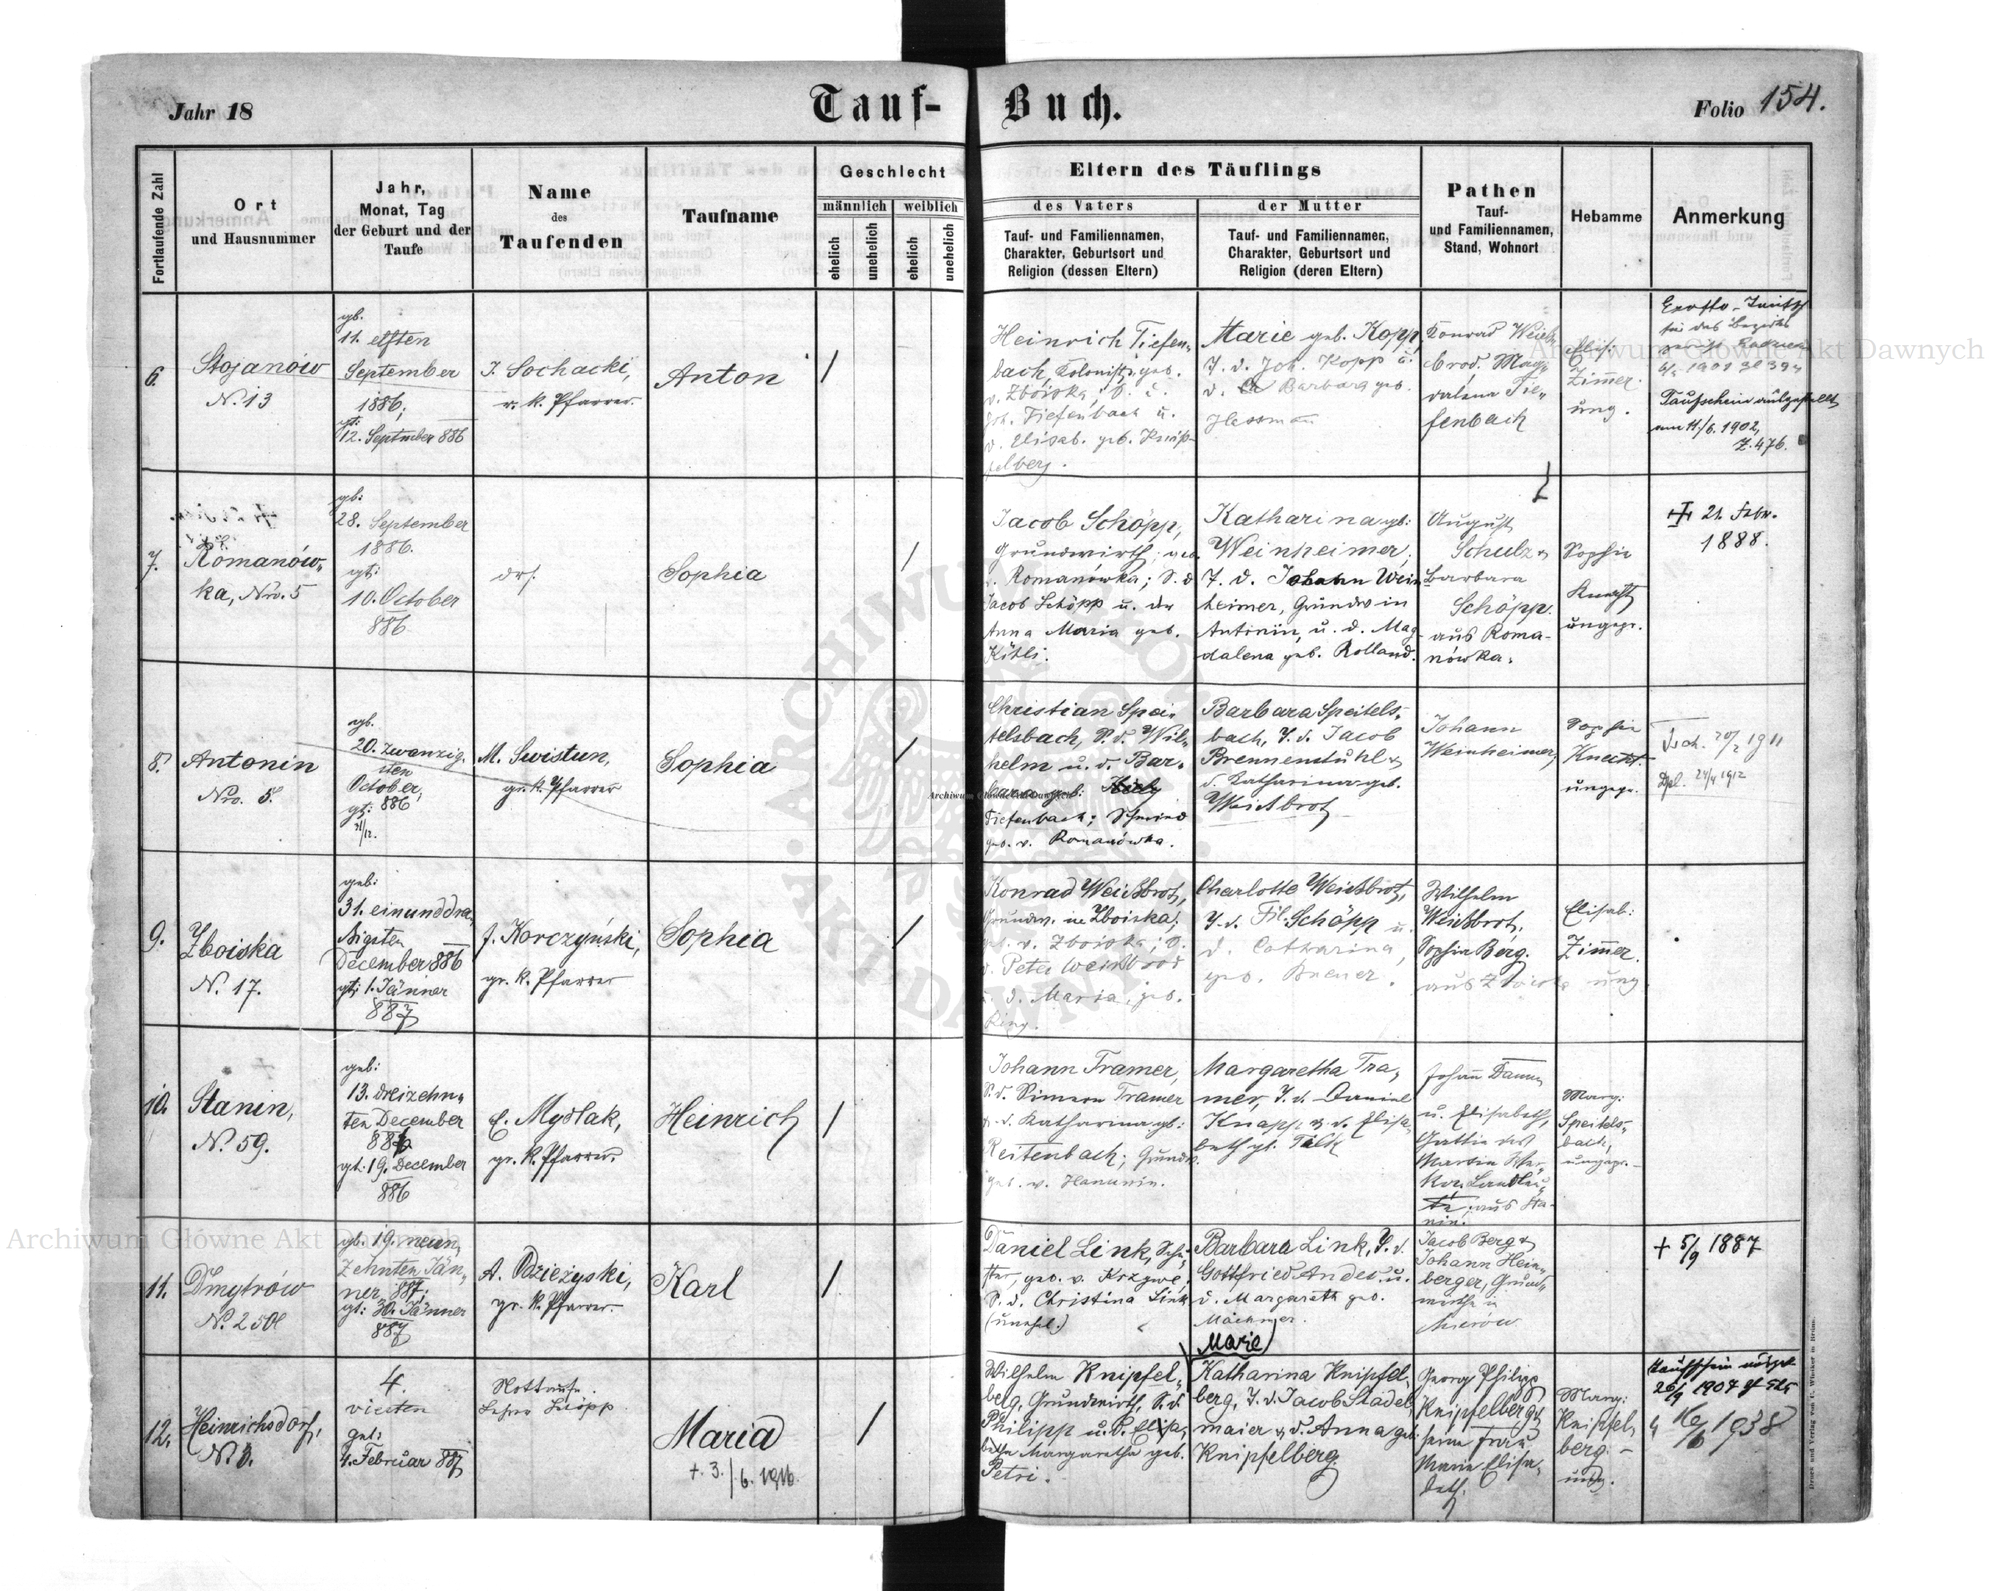 Jahr 18
Tauf-Buch.
Folio 154.
Fortlaufende Zahl
Ort
und Hausnummer
Jahr,
Monat, Tag
der Geburt und der
Taufe
Name
des
Taufenden
Taufname
Geschlecht
männlich
weiblich
ehelich
unehelich
ehelich
unehelich
Eltern des Täuflings
des Vaters
Tauf- und Familiennamen,
Charakter, Geburtsort und
Religion (dessen Eltern)
der Mutter
Tauf- und Familiennamen,
Charakter, Geburtsort und
Religion (deren Eltern)
Pathen
Tauf-
und Familiennamen,
Stand, Wohnort
Hebamme
Anmerkung
6.
Stojanów
N. 13
gb.
11. elften
September
1886;
gt:
12. September 886
J. Sochacki,
r. k. Pfarrer.
Anton
Heinrich Tiefen-
bach, Kolonist, geb.
v. Zboiska, S. d.
Joh. Tiefenbach u.
d. Elisab. geb. Knip-
felberg.
Marie geb. Kopp,
T. d. Joh. Kopp u.
d. Barbara geb.
Konrad Weiß-
brod, Mag-
dalena Tie-
fenbach
Elis:
Zimmer.
ung.
1901
Taufschein ausgestellt
am 11./6. 1902,
Z. 476.
7.
Romanów-
ka, Nro. 5
gb:
28. September
1886.
gt:
10. October
886
drs.
Sophia
Jacob Schöpp,
Grundwirth, geb.
v. Romanówka; S. d
Jacob Schöpp u. der
Anna Maria geb.
Katharina gb:
Weinheimer,
T. d. Johann Wein-
heimer, Grundw in
Antonin, u. d. Mag-
dalena geb. Rolland.
August
Schulz &
Barbara
Schöpp.
aus Roma-
nówka.
Sophie
Knecht
ungepr.
21. Febr.
1888.
8.
Antonin
Nro. 5.
gb.
20. zwanzig-
sten
October,
gt: 886
21/12.
M. Swistun,
gr. k. Pfarrer
Sophia
Christian Spei-
telsbach, S. d. Wil-
helm u. d. Bar-
bara geb:
Tiefenbach; Schmied
geb. v. Romanówka.
Barbara Speitels-
bach, T. d. Jacob
Brennenstuhl &
d. Katharina geb.
Weißbrot
Johann
Weinheimer,
Sophie
Knecht.
ungepr.
1911
Dpl. 24/4 1912
9.
Zboiska
N. 17.
geb:
31. einunddrei-
ßigsten
December 886
gt: 1. Jänner
887
J. Korczyński,
gr. k. Pfarrer
Sophia
Konrad Weißbrot,
Grundw. in Zboiska,
geb. v. Zboiska; S.
d. Peter Weißbrod
u. d. Maria, geb.
Ring.
Charlotte Weißbrot,
T. d. Fil. Schöpp u.
d. Catharina,
geb.
Wilhelm
Weißbrot,
Sophia Berg.
aus Zboiska
Elisab:
Zimmer.
ung
10.
Stanin,
N. 59.
geb:
13. dreizehn-
ten December
886
gt: 19. December
886
E. Mydlak,
gr. k. Pfarrer.
Heinrich
Johann Tramer,
S. d. Simeon Tramer
u. d. Katharina gb:
Reitenbach; Grundw.
geb. v. Hanunin.
Margaretha Tra-
mer, T. d. Daniel
Knapp & d. Elisa-
beth gb. Falk
Johann
u. Elisabeth,
Gattin des
Martin
aus Sta-
nin.
Marg:
Speitels-
bach,
ungepr.
11.
Dmytrów
N. 250
gb. 19. neun-
zehnten Jän-
ner 887;
gt: 30. Jänner
887
A. Dzieżyski,
gr. k. Pfarrer.
Karl
Daniel Link, Schu-
ster, geb. v.
S. d. Christina Link
(unehel.)
Barbara Link, T. d.
Gottfried Andes u.
d. Margareth geb.
Jacob Berg &
Johann Hein-
berger, Grund-
wirthe in
+ 5/9 1887
12.
Heinrichsdorf,
N. 3.
4.
vierten
gt:
4. Februar 887
Nottaufe.
Lehrer Schöpp.
Maria
+ 3./6. 1916
Wilhelm Knipfel-
berg, Grundwirth, S. d.
Philipp u. d. Elisa-
betha Margaretha geb.
Petri.
Marie
Katharina Knipfel-
berg, T. d. Jacob Stadel-
maier & d. Anna geb:
Knipfelberg.
Georg Philipp
Knipfelberg &
seine Frau
Marie Elisa-
beth.
Marg:
Knipfel-
berg.-
ung.
Taufschein ausgest
26/9 1907
1938
Archiwum Główne Akt Dawnych
Archiwum Główne Akt Dawnych
Archiwum Główne Akt Dawnych